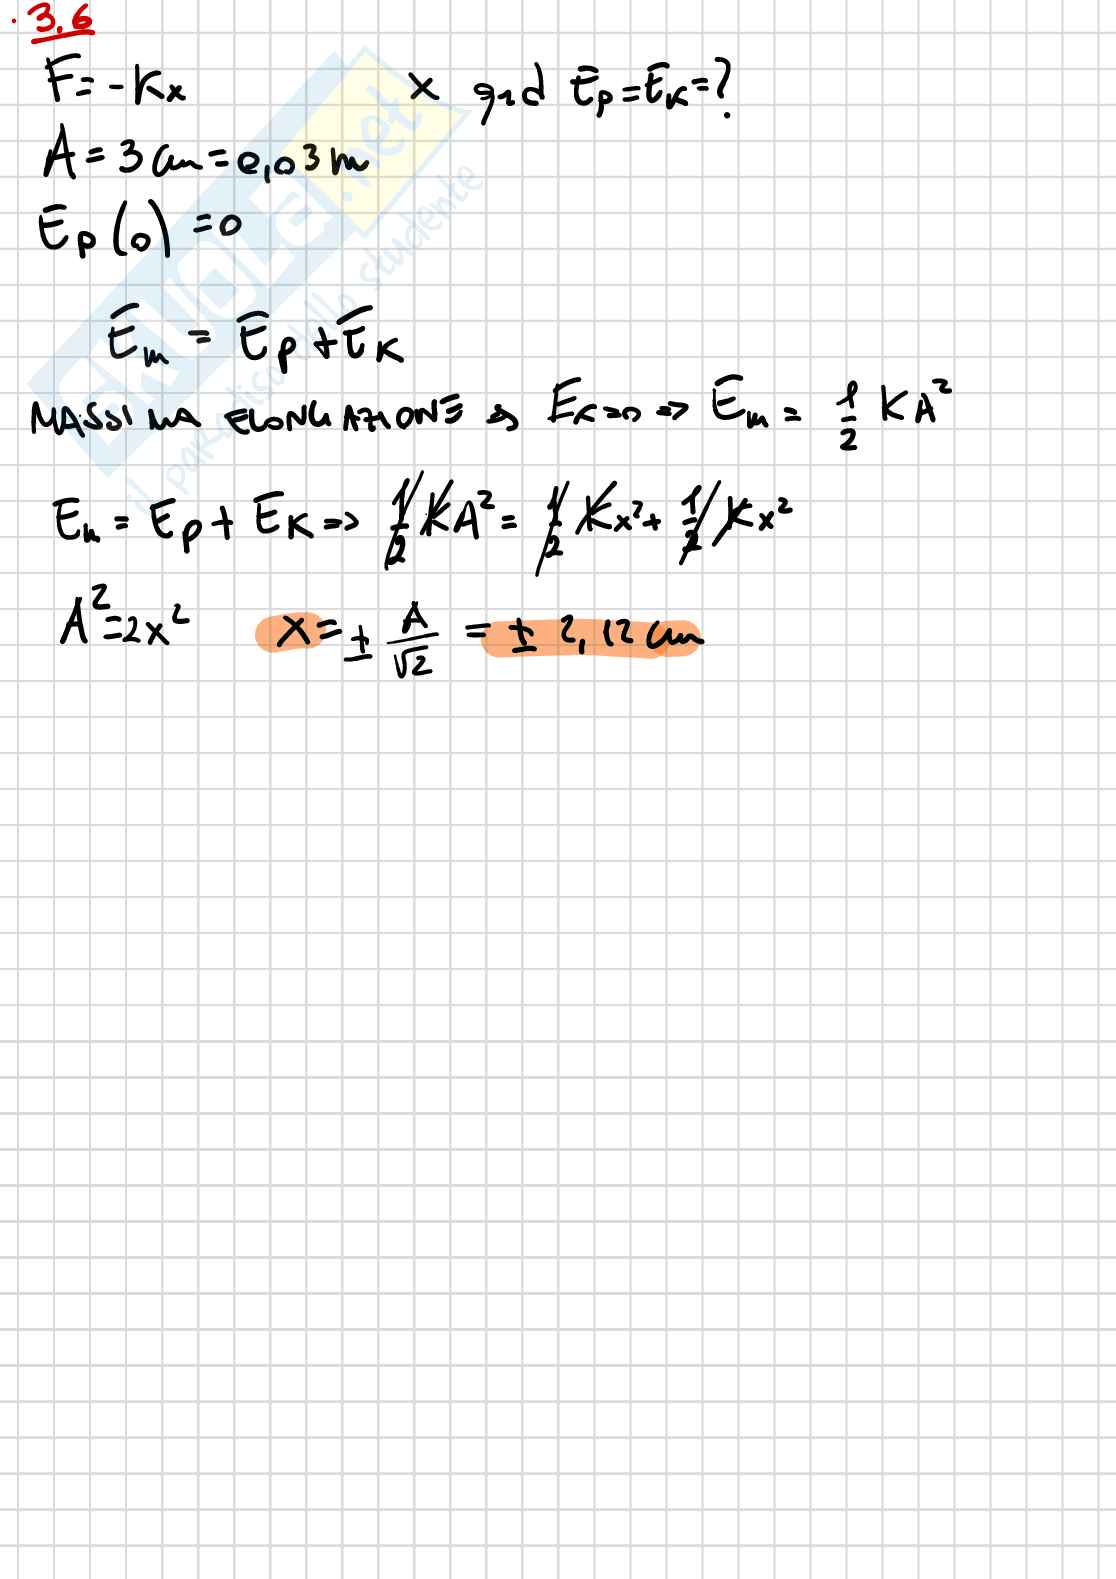 · 3.6
F = -Kx
x qnd Ep = Ek = ?
A = 3 cm = 0,03 m
Ep(0) = 0
Em = Ep + Ek
MASSIMA ELONGAZIONE => Ek=0 => Em = 1/2 KA²
Em = Ep + EK => 1/2 KA² = 1/2 Kx² + 1/2 Kx²
A² = 2x² x = ± A/√2 = ± 2,12 cm
SKUOLA.net
il paradiso dello studente